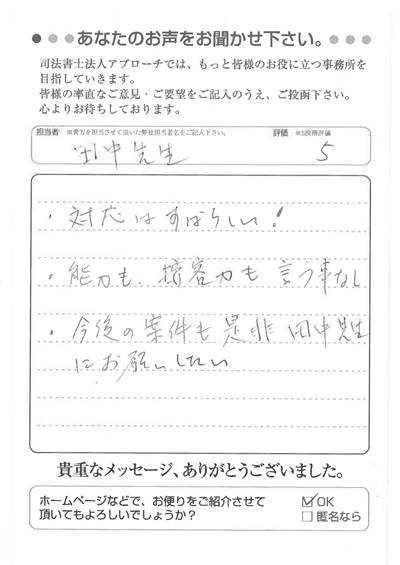 あなたのお声をお聞かせ下さい。
司法書士法人アプローチでは、もっと皆様のお役に立つ事務所を
目指していきます。
皆様の率直なご意見・ご要望をご記入のうえ、ご投函下さい。
心よりお待ちしております。
担当者 ※貴方を担当させて頂いた弊社担当者名をご記入下さい。 評価 ※5段階評価
田中先生 5
・対応はすばらしい!
・能力も、接客力も言う事なし
・今後の案件も是非田中先生
にお願いしたい
貴重なメッセージ、ありがとうございました。
ホームページなどで、お便りをご紹介させて
頂いてもよろしいでしょうか?
☑OK
□匿名なら